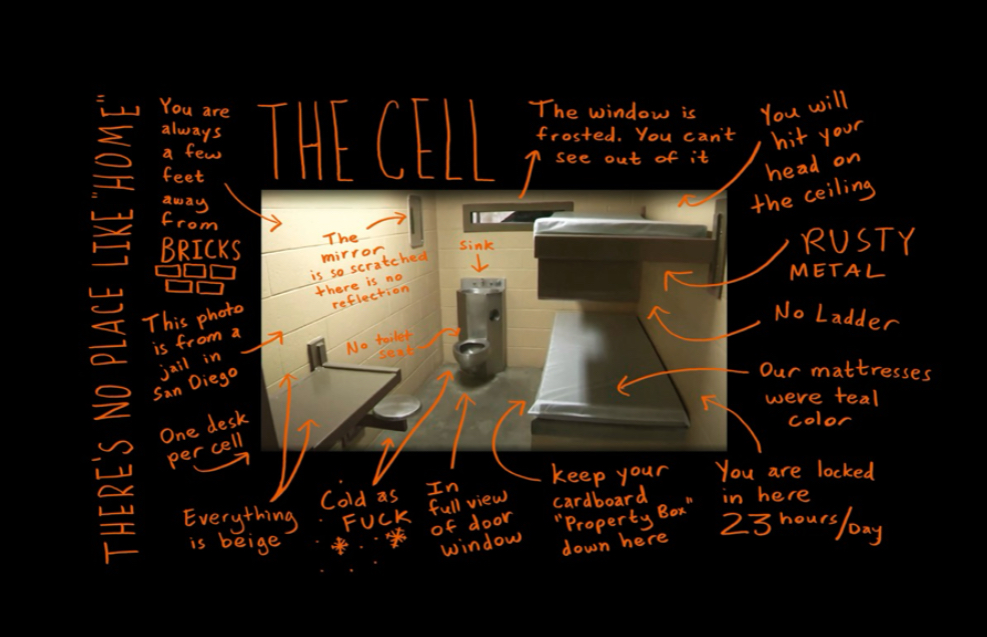 THERE'S NO PLACE LIKE "HOME"
You are
always
a few
feet
away
from
BRICKS
THE CELL
The window is
frosted. You can't
see out of it
You will
hit your
head on
the ceiling
The
mirror
is so scratched
there is no
reflection
Sink
RUSTY
METAL
This photo
is from a
jail in
San Diego
No toilet
seat
No Ladder
Our mattresses
were teal
color
One desk
per cell
Everything
is beige
Cold as
FUCK
In
full view
of door
window
keep your
cardboard
"Property Box"
down here
You are locked
in here
23 hours/Day